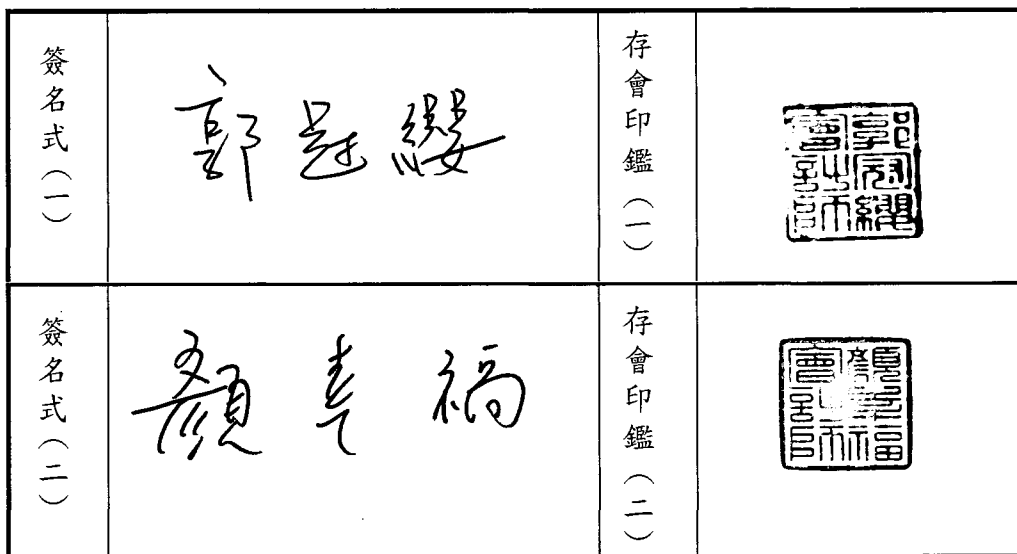 簽名式（一）
郭冠纓
存會印鑑（一）
郭冠纓會計師
簽名式（二）
顏幸福
存會印鑑（二）
顏幸福會計師